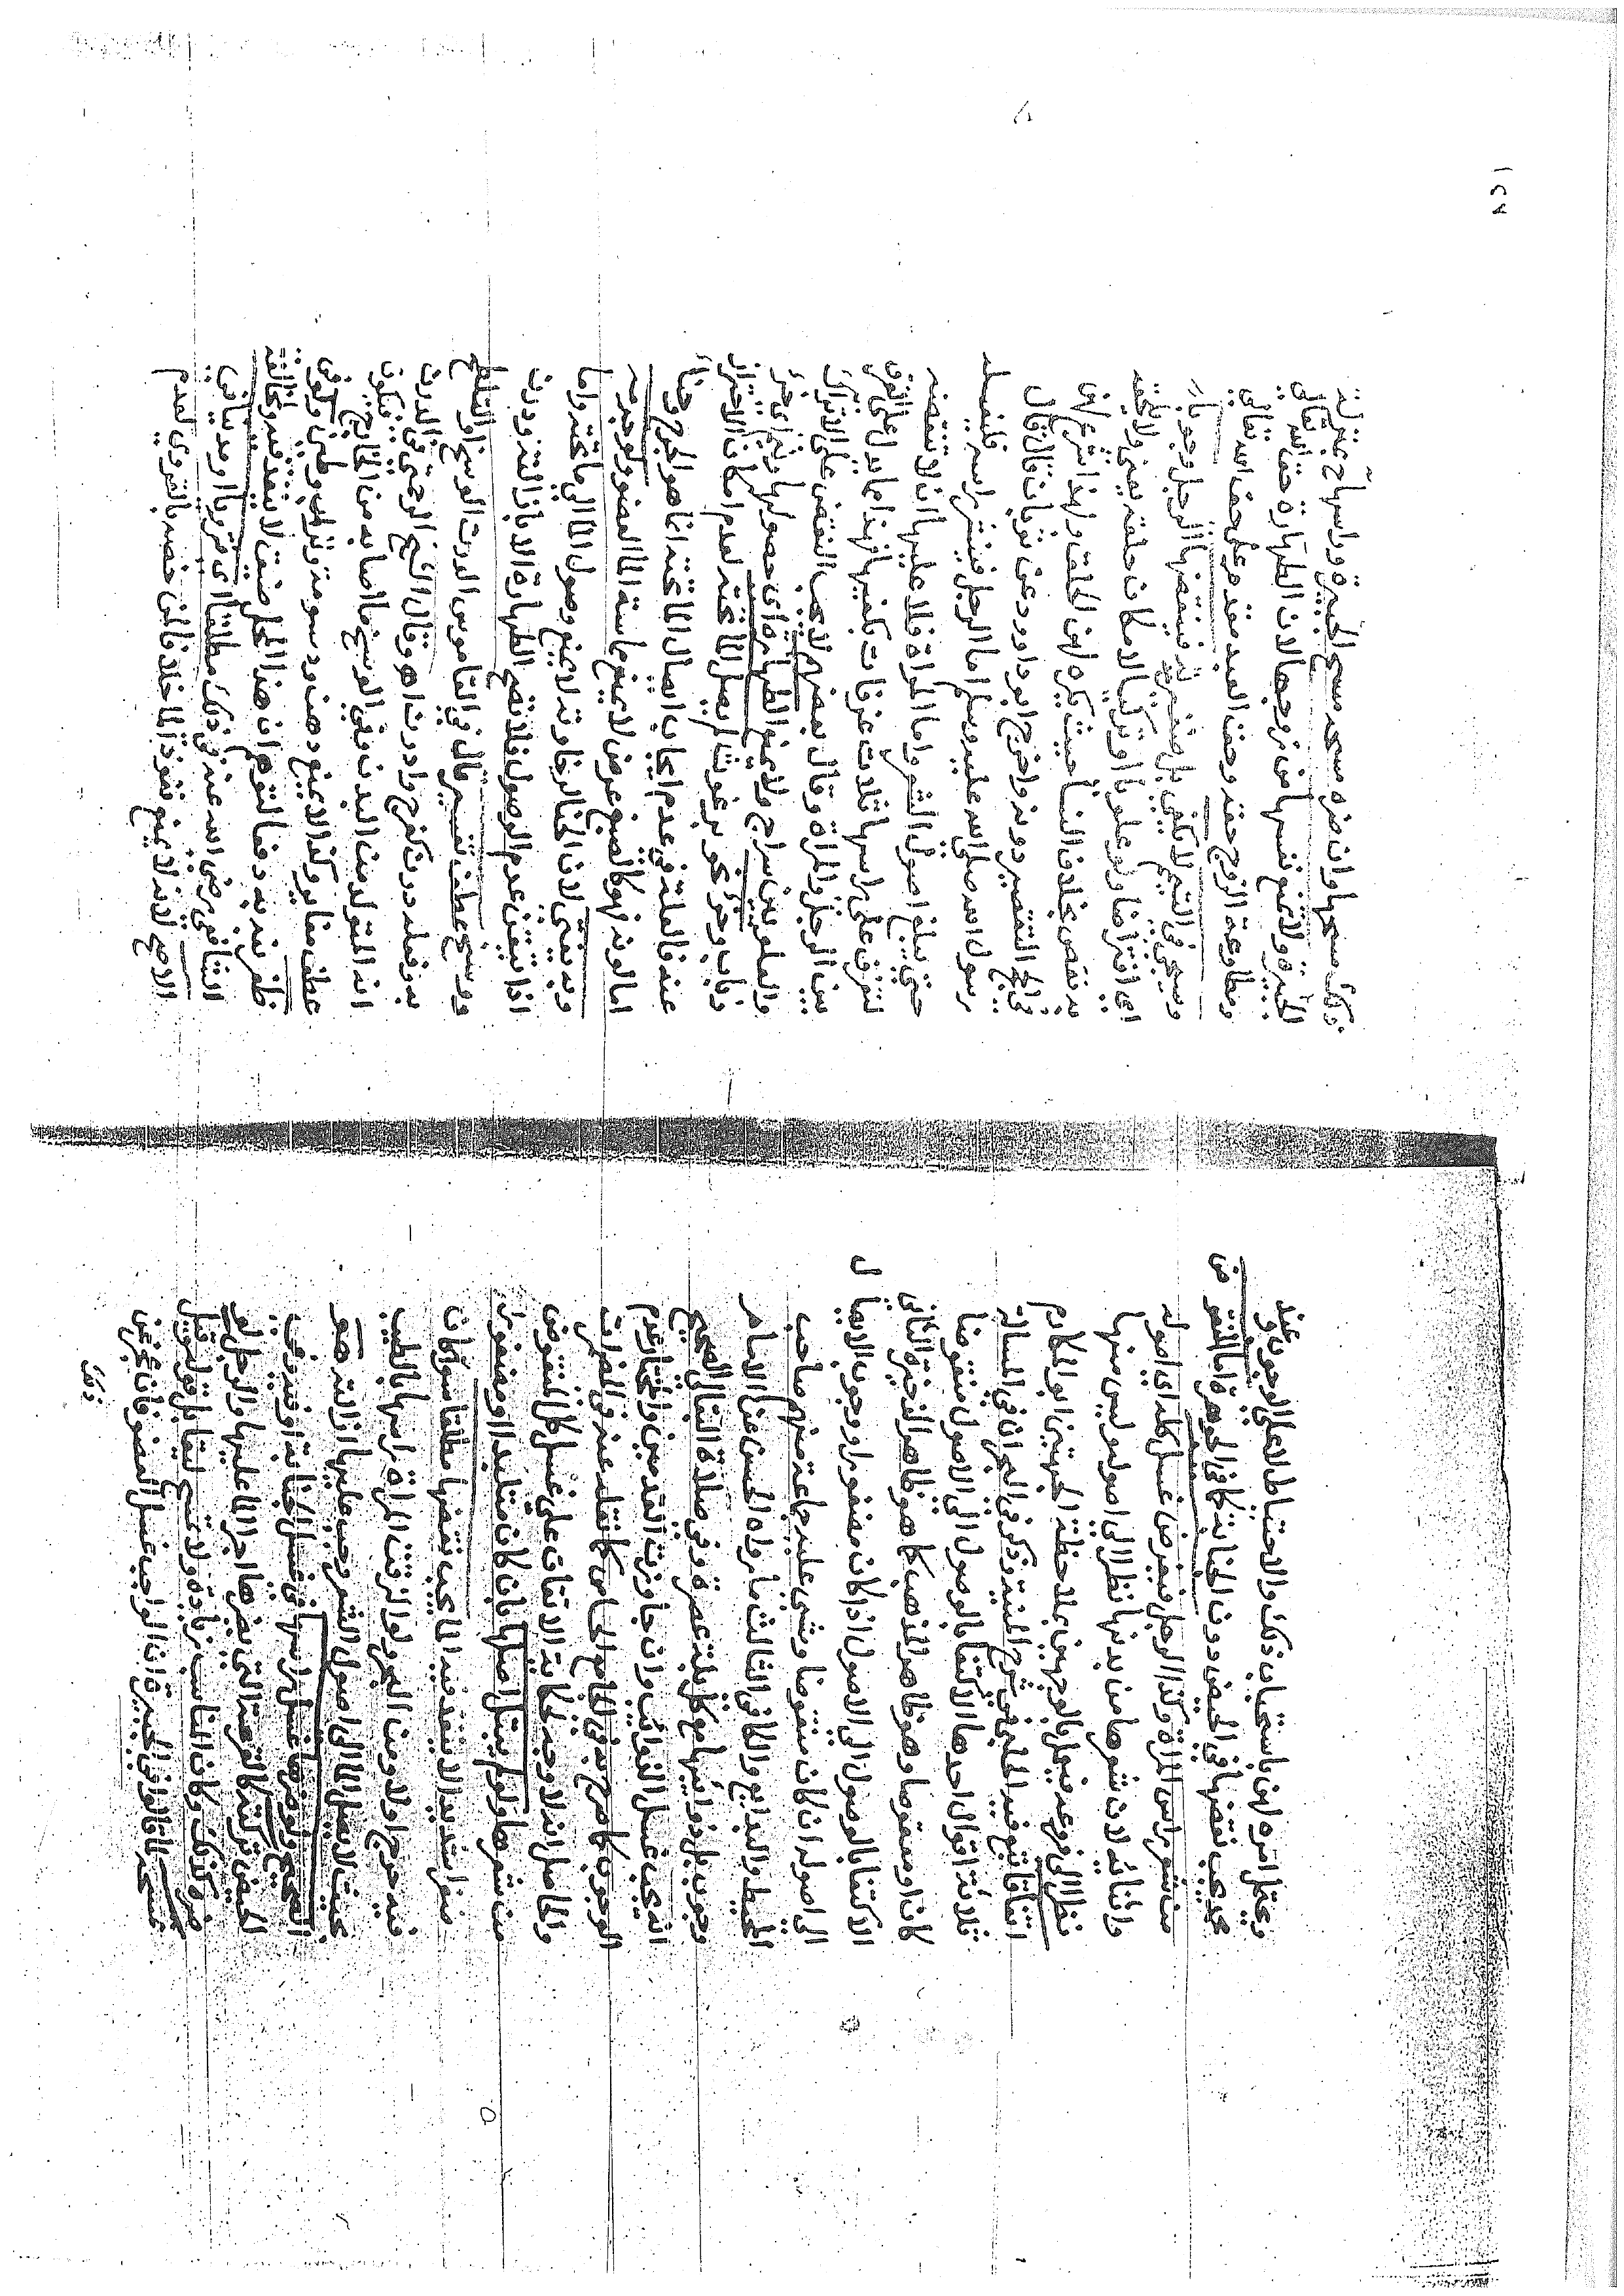 ويحتمل امره لهن باستحباب ذلك والاحتياط لا على الوجوب وعند
احمد يجب نقضها في الحيض دون الجنابة كما في الجوهرة اما المنقوض
من شعر راس المراة وكذا الرجل فيفرض غسل كله اي اصوله
واثنائه لان شعرها من بدنها نظرا الى اصوله وليس منها
نظرا الى فروعه فيعمل بالوجهين بملاحظة الجهتين ابو المكارم
اتفاقا تبع فيه الحلبي في شرح المنية وذكر في البحر ان في المسالة
ثلاثة اقوال احدها الاكتفا بالوصول الى الاصول منقوضا
كان او معقوصا وهو ظاهر المذهب كما هو ظاهر الذخيرة الثاني
الاكتفا بالوصول الى الاصول اذا كان مضفورا ووجوب الايصال
الى اصوله ان كان منقوضا ومشى عليه جماعة منهم صاحب
المحيط والبدايع والكافي الثالث ما رواه الحسن عن الامام
وجوب بل ذوائبها مع كل بلة عصرة وفي صلاة البقالي الصحيح
انه يجب غسل الذوائب وان جاوزت القدمين والمختار عدم
الوجوب كما صرح به في الجامع الحسامي كما نقله عنه في المضمرات
والحاصل انه لا وجه لحكاية الاتفاق على غسل كل المنقوض
من شعرها ولو لم يبتل اصلها بان كان متلبدا او مضفورا
ضفرا شديدا لا ينفذ فيه الما يجب نقضها مطلقا سوا كان
فيه حرج اولا ومن البحر ولو الزقت المراة راسها بالطيب
بحيث لا يصل الما الى اصول الشعر وجب عليها ازالته هو
الصحيح ولو ضرها غسل راسها في غسل الجنابة او فيه وفي
الحيض تركته كالقرحة التي يضرها اجرا الما عليها والرجل لو
ضره كذلك وكان المناسب زيادة ولا تمنع لتقابل قوله وقيل
تمسحه لما قالوا في الجبيرة ان الواجب غسل العضو فان عجز عن
ذلك
١٢٨
ذلك مسحها وان ضره مسحه مسح الجبيرة وراسها بمنزلة
الجبيرة ولا تمنع نفسها من زوجها لان الطهارة حق الله تعالى
ومطاوعة الزوج حقه وحق العبد مقدم على حق الله تعالى
وسيجي في التيمم لا يكفي بل ضفيرته فينقضها الرجل وجوبا
اي افتراضا ولو علويا او تركيا لامكان حلقه يعني ولا لحية
به نقص بخلاف النسا حيث يكره لهن الحلق ولهذا شرع لهن
في الحج التقصير دونه واخرج ابو داوود عن ثوبان قال قال
رسول الله صلى الله عليه وسلم اما الرجل فلينشر راسه فليغسله
حتى يبلغ اصول الشعر واما المراة فلا عليها ان لا تنقضه
لتغرف على راسها ثلاث غرفات بكفيها فهذا مما يدل على الفرق
بين الرجل والمراة وقال بعضهم لا يجب النقض على الاتراك
والعلويين سراج ولا يمنع الطهارة اي حصولها ونيم اي خرء
ذباب وخرء نحو برغوث لم يصل الما تحته لعدم امكان الاحتراز
عنه فالعلة في عدم ايجاب ايصال الما تحته انما هو الحرج وحناء
اما لونه فهو كالصبغ عرض لا يمنع مماسة الما العضو ولو جرمه
وبه يفتى لان الحنا لرخاوته لا يمنع وصول الما الى ما تحته واما
اذا تيقن عدم الوصول فلا تصح الطهارة الا بازالته ودرن
ووسخ عطف تفسير قال في القاموس الدرن الوسخ او التلطخ
به وفعله درن كفرح وادرن اهـ وقال الشيخ الرحمتي في الدرن
انه المتولد من البدن وفي الوسخ ما اصابه من الخارج فيكون
عطف مغاير وكذا لا يمنع دهن ودسومة وتراب وطين ولو في
ظفر نبه به دفعا لتوهم ان هذا المحل ضيق لا ينفذ فيه وبخالفة
الشافعي رضي الله عنه في ذلك مطلقا اي قرويا او مدنيا في
الاصح لانه لا يمنع نفوذ الما خلافا لمن خصه بالقروي لعدم